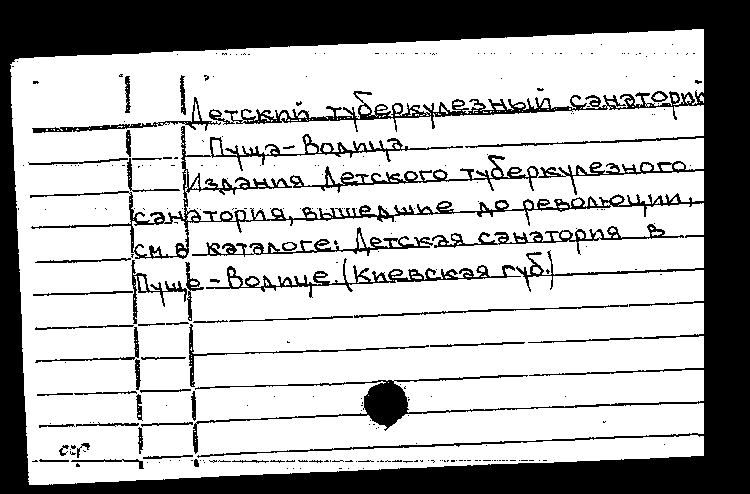 Детский туберкулезный санаторий
Пуща-Водица.
Издания Детского туберкулезного
санатория, вышедшие до революции,
см. в каталоге: Детская санатория в
Пуще-Водице. (Киевская губ.)